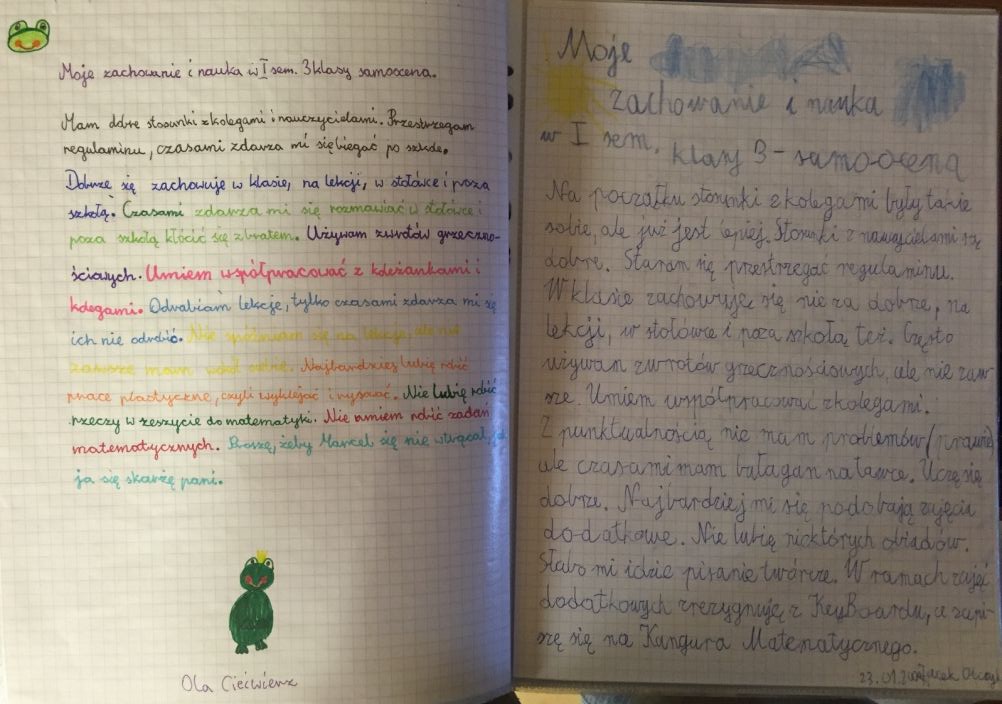 Moje zachowanie i nauka w I sem. 3 klasy samoocena.
Mam dobre stosunki z kolegami i nauczycielami. Przestrzegam
regulaminu, czasami zdarza mi się biegać po szkole.
Dobrze się zachowuję w klasie, na lekcji, w stołówce i poza
szkołą. Czasami zdarza mi się rozmawiać w stołówce i
poza szkołą kłócić się z bratem. Używam zwrotów grzeczno-
ściowych. Umiem współpracować z koleżankami i
kolegami. Odrabiam lekcje, tylko czasami zdarza mi się
ich nie odrobić. Nie spóźniam się na lekcje, ale nie
zawsze mam wokół siebie. Najbardziej lubię robić
prace plastyczne, czyli wyklejać i rysować. Nie lubię robić
rzeczy w zeszycie do matematyki. Nie umiem robić zadań
matematycznych. Proszę, żeby Marcel się nie wtrącał, jak
ja się skarżę pani.
Ola Ciećwierz
Moje
zachowanie i nauka
w I sem. klasy 3 - samoocena
Na początku stosunki z kolegami były takie
sobie, ale już jest lepiej. Stosunki z nauczycielami są
dobre. Staram się przestrzegać regulaminu.
W klasie zachowuje się nie za dobrze, na
lekcji, w stołówce i poza szkołą też. Często
używam zwrotów grzecznościowych, ale nie zaw-
sze. Umiem współpracować z kolegami.
Z punktualnością nie mam problemów (prawie)
ale czasami mam bałagan na ławce. Uczę się
dobrze. Najbardziej mi się podobają zajęcia
dodatkowe. Nie lubię niektórych obiadów.
Słabo mi idzie pisanie twórcze. W ramach zajęć
dodatkowych zrezygnuję z KeyBoardu, a zapi-
szę się na Kangura Matematycznego.
23.01. Jacek